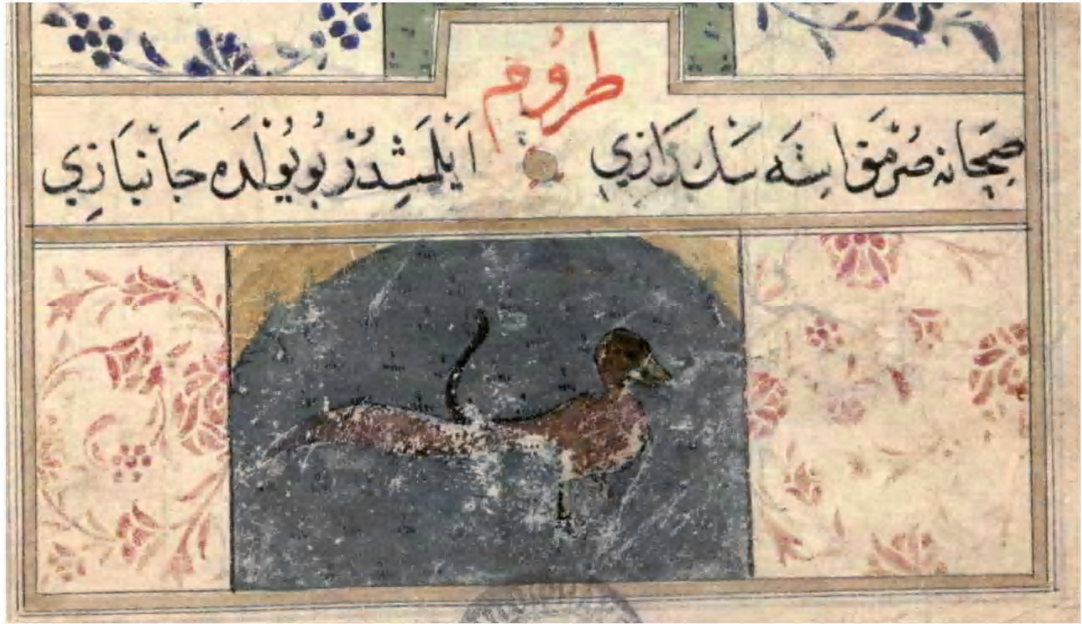 طروم
صچانه صرمق استه سك رازي ايلمشدر بو يولده جانبازي